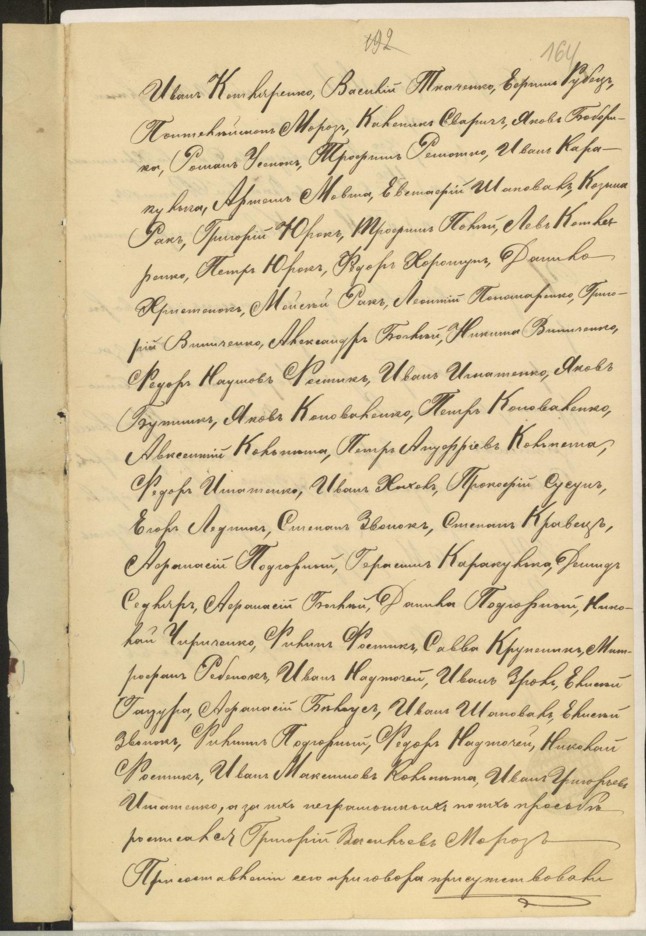 192
164
Иванъ Котляренко, Василій Ткаченко, Ефимъ Рубецъ,
Пантелеймонъ Морозъ, Каленикъ Сваричъ, Яковъ Бобри-
ка, Романъ Усенокъ, Трофимъ Решотко, Иванъ Кара-
кулька, Артемъ Мовша, Евстафій Шаповалъ, Козьма
Ракъ, Григорій Юрокъ, Трофимъ Полый, Левъ Котля-
ренко, Петръ Юрокъ, Ѳедоръ Хорошунъ, Данило
Христенокъ, Мойсѣй Ракъ, Леонтій Пономаренко, Григо-
рій Винниченко, Александръ Боклый, Никита Винниченко,
Ѳедоръ Наумовъ Ѳостикъ, Иванъ Игнатенко, Яковъ
Бутникъ, Яковъ Коноваленко, Петръ Коноваленко,
Авксентій Кольпита, Петръ Андреевъ Кольпета,
Ѳедоръ Игнатенко, Иванъ Прокофій Сусунъ,
Егоръ Ледникъ, Степанъ Звонокъ, Степанъ Кравецъ,
Афанасій Подгорный, Герасимъ Каракулька, Демидъ
Седляръ, Афанасій Боклый, Данила Подгорный, Нико-
лай Чириченко, Филипъ Ѳостикъ, Савва Крупеникъ, Мит-
рофанъ Ребенокъ, Иванъ Надточей, Иванъ Елисей
Гануфа, Афанасій Иванъ Шаповалъ, Елисей
Звонокъ, Филипъ Подгорный, Ѳедоръ Надточей, Николай
Ѳостикъ, Иванъ Максимовъ Кольпита, Иванъ Григорьевъ
Игнатенко, а за нихъ неграмотныхъ по ихъ просьбѣ
росписался Григорій Васильевъ Морозъ
При составленіи сего приговора присутствовали